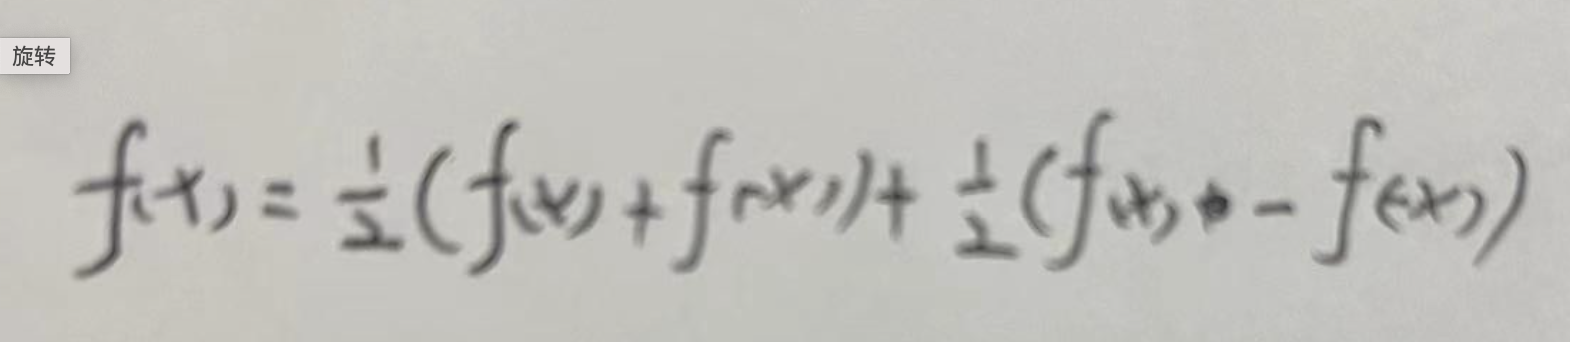 旋转
f(x) = 1/2 (f(x) + f(-x)) + 1/2 (f(x) - f(-x))